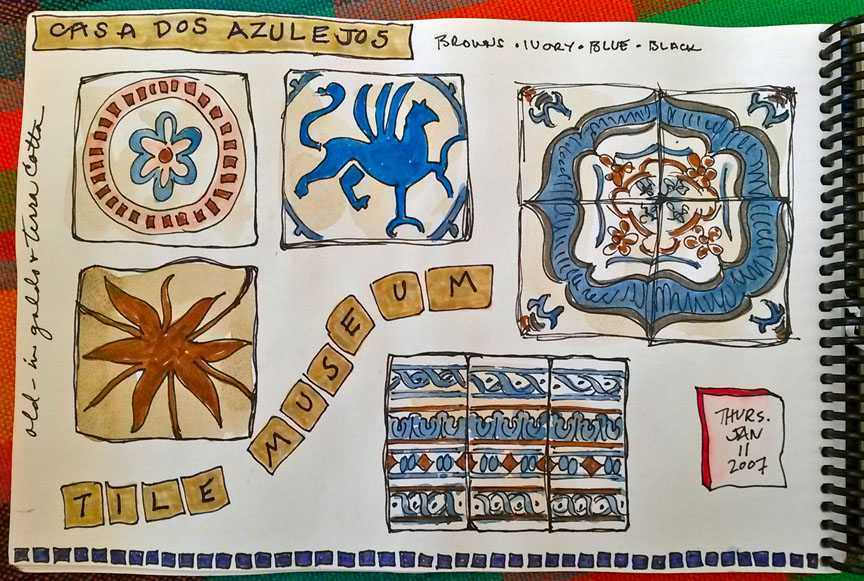 CASA DOS AZULEJOS
BROWNS · IVORY · BLUE · BLACK
old - in golds + terra cotta
TILE MUSEUM
THURS.
JAN
11
2007